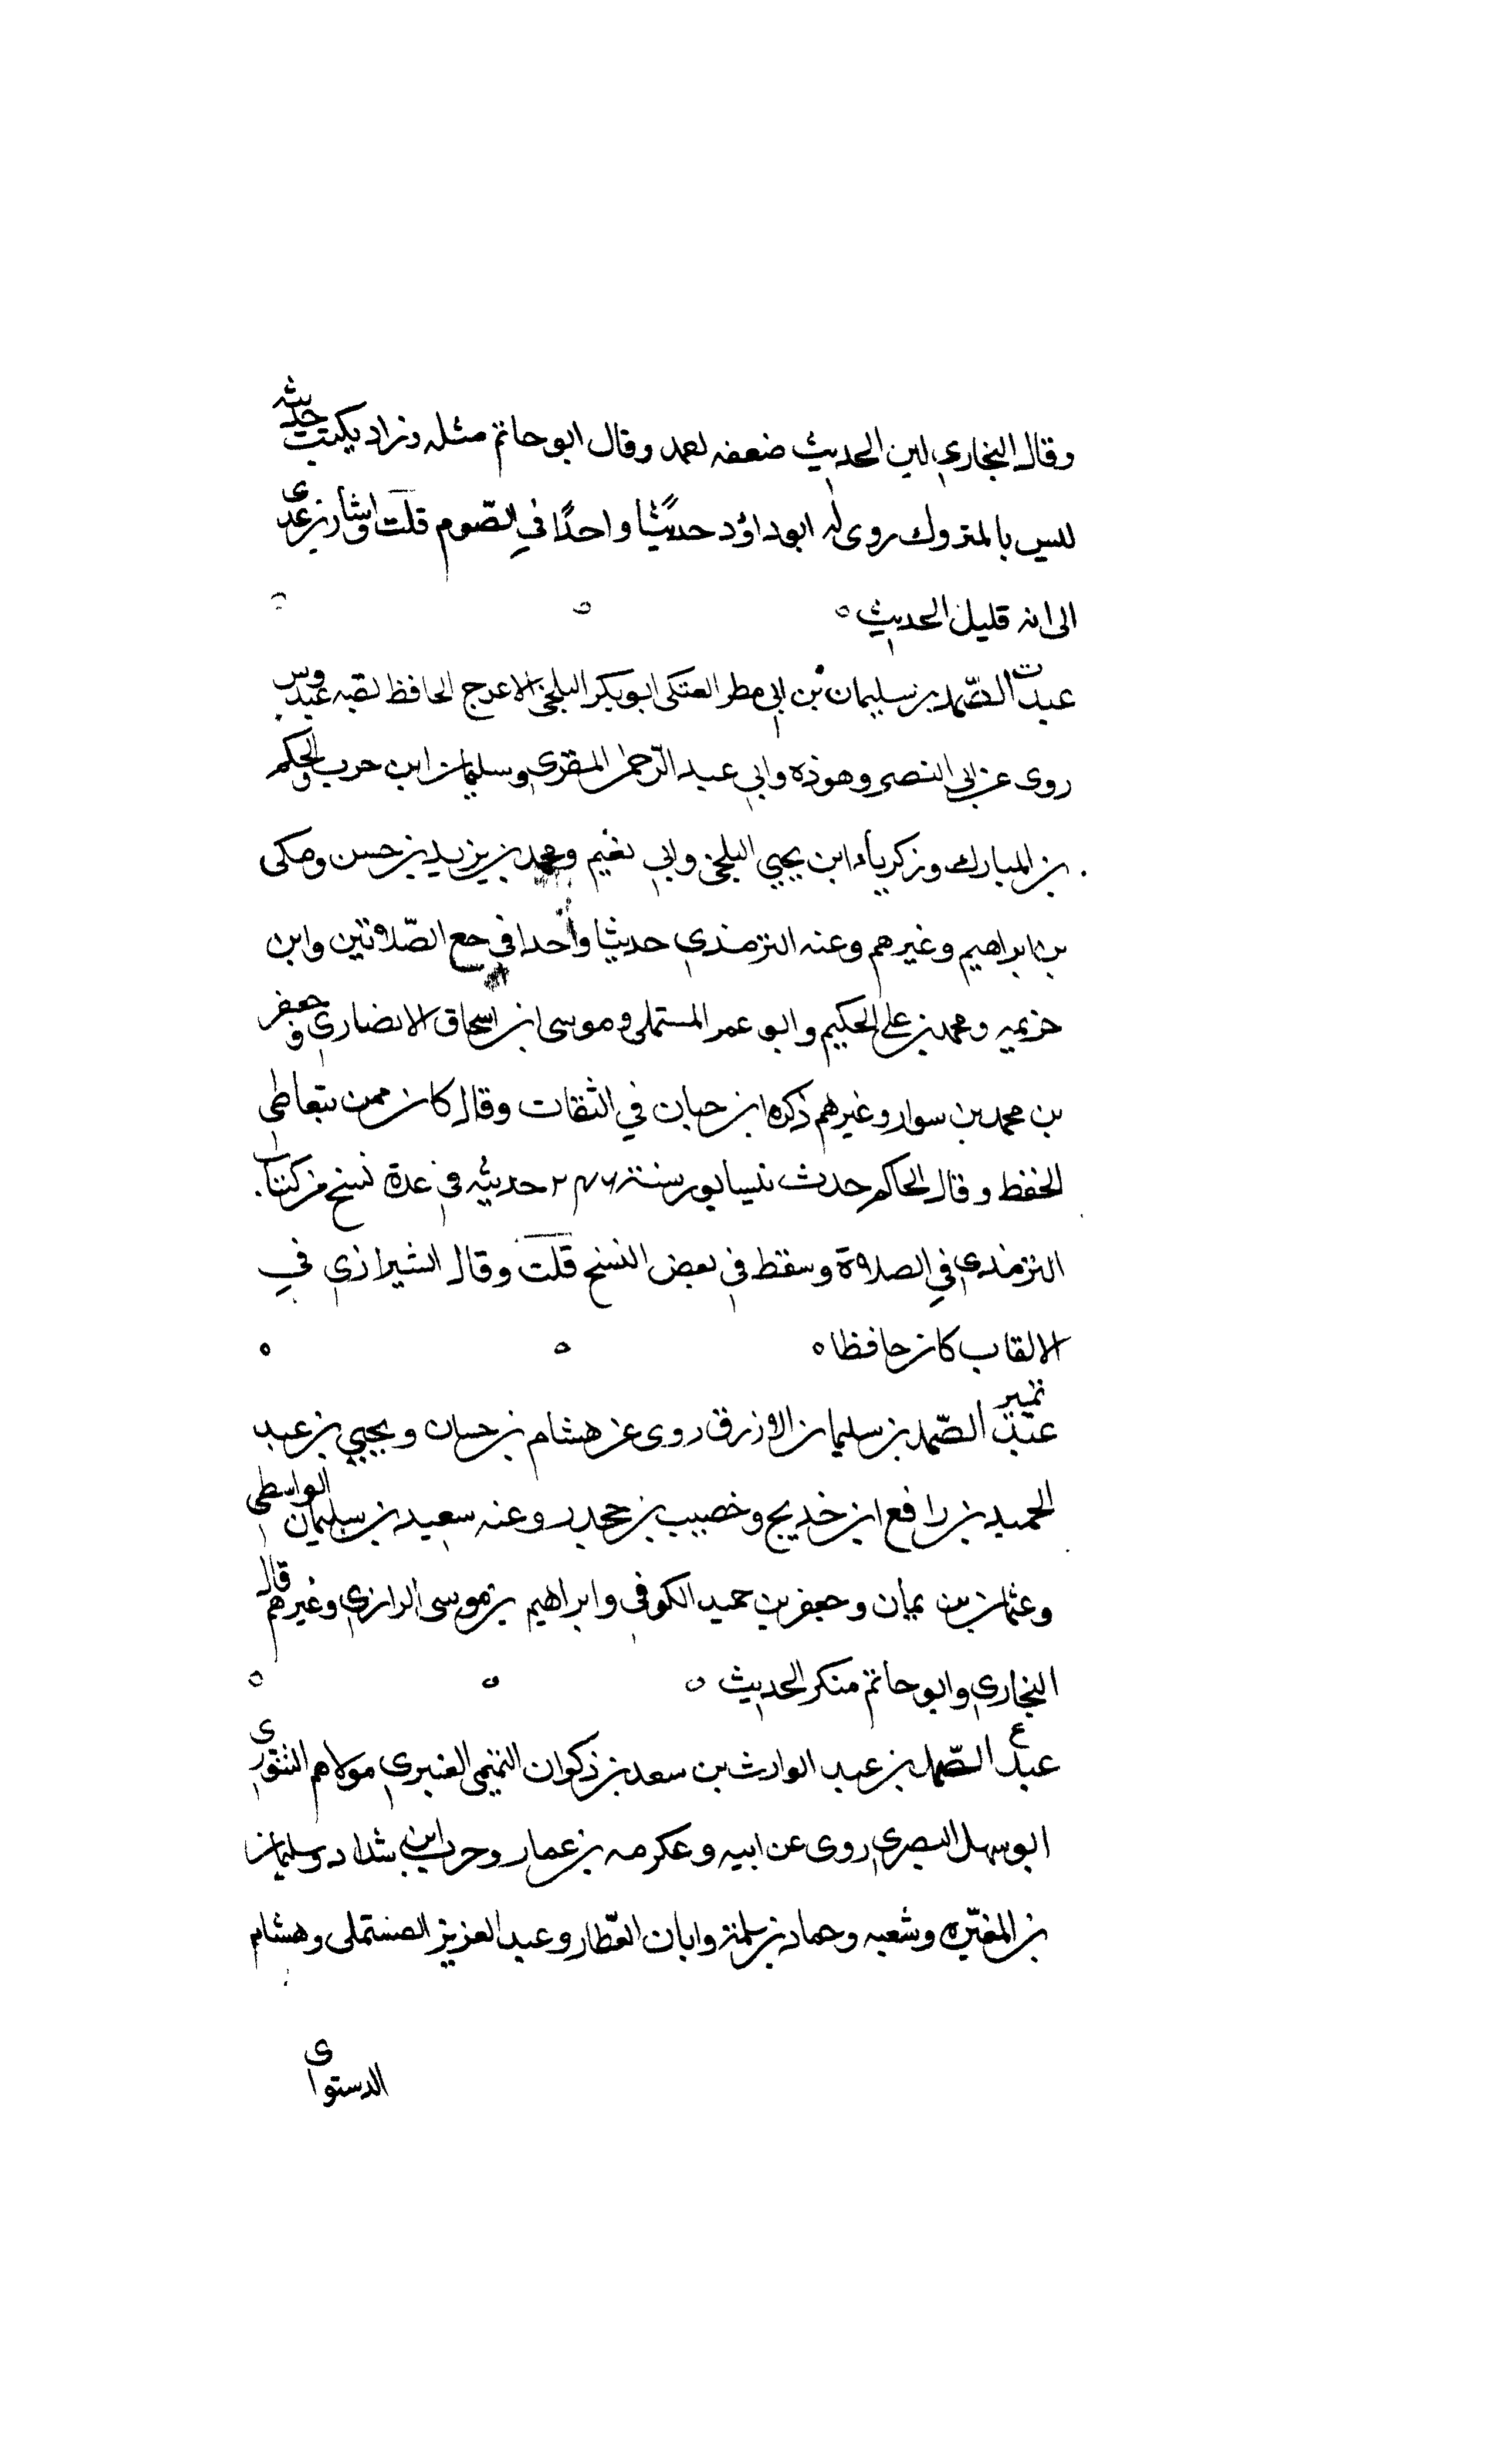 وقال البخاري لين الحديث ضعفه احمد وقال ابو حاتم مثله وزاد يكتب حديثه
ليس بالمتروك روى له ابو داؤد حديثًا واحدًا في الصّوم قلت واشار بن عدى
الى انه قليل الحديث ه
عبد الصّمد بن سليمان بن ابي مطر العتكى ابو بكر البلخي الاعرج الحافظ لقبه عبدوس
روى عن ابي النصر وهوذه وابي عبد الرّحمن المقرى وسليمان ابن حرب والحكم
بن المبارك وزكرياء ابن يحيي البلخي وابي نعيم ومحمد بن يزيد بن خنس ومكى
بن ابراهيم وغيرهم وعنه الترمذي حديثا واحدا في جمع الصّلاتين وابن
خزيمه ومحمد بن على الحكيم وابو عمر المستملى وموسى ابن اسحاق الانصاري وجعفر
بن محمد بن سوار وغيرهم ذكره ابن حبان في الثقات وقال كان ممن يتعاطي
الحفظ وقال الحاكم حدث نيسابور سنة ٢٤٦ حديثه في عدة نسخ من كتاب
الترمذي في الصلاة وسقط في بعض النسخ قلت وقال الشيرازي في
الالقاب كان حافظا ه
تمييز
عبد الصّمد بن سليمان الازرق روى عن هشام بن حسان ويحيي بن عبد
الحميد بن رافع ابن خديج وخصيب بن جحدر وعنه سعيد بن سليمان الواسطي
وعثمان بن يمان وجعفر بن حميد الكوفي وابراهيم بن موسى الرازي وغيرهم قال
البخاري وابو حاتم منكر الحديث ه
ع
عبد الصّمد بن عبد الوارث بن سعد بن ذكوان التميمي العنبري مولاهم التنوري
ابو سهل البصري روى عن ابيه وعكرمه بن عمار وحرب ابن شداد وسليمان
بن المغيّره وشعبه وحماد بن سلمة وابان العّطار وعبد العزيز المستملى وهشام
الدستواى